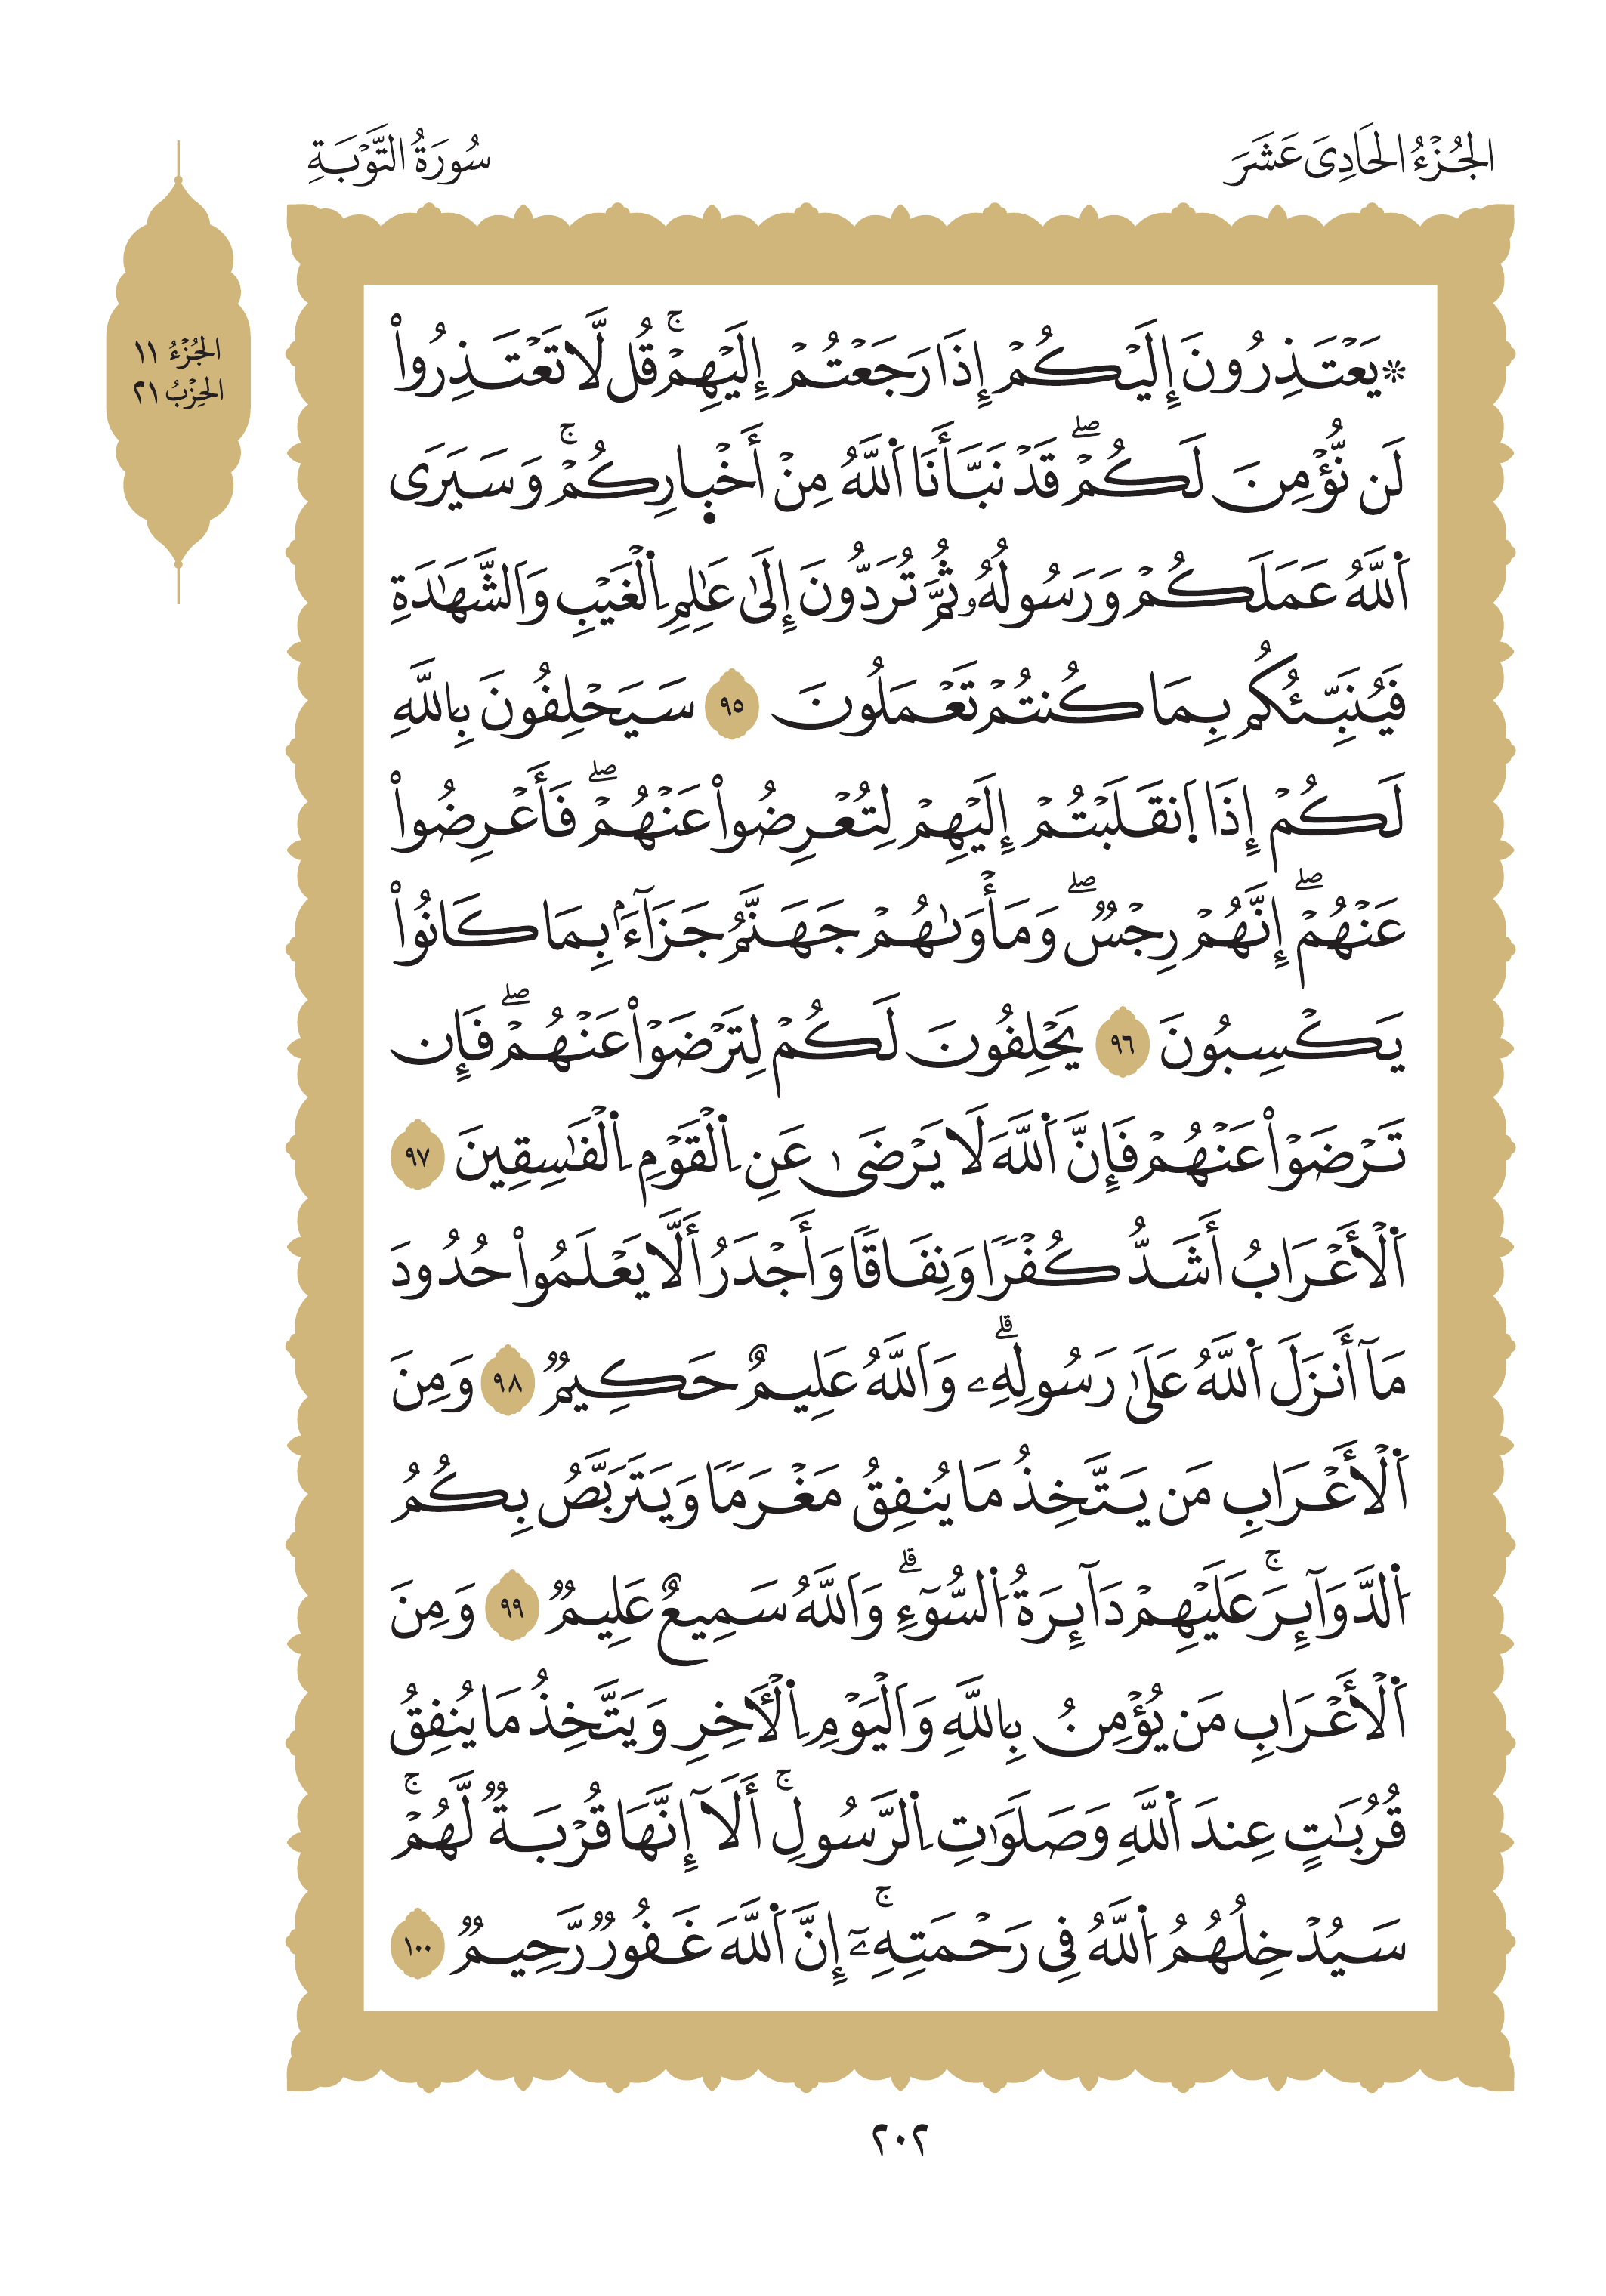 الجُزْءُ الحَادِىَ عَشَرَ
سُورَةُ التَّوْبَةِ
الجُزْءُ ١١
الحِزْبُ ٢١
۞يَعْتَذِرُونَ إِلَيْكُمْ إِذَا رَجَعْتُمْ إِلَيْهِمْۚ قُل لَّا تَعْتَذِرُوا۟
لَن نُّؤْمِنَ لَكُمْۖ قَدْ نَبَّأَنَا اَ۬للَّهُ مِنْ أَخْب۪ارِكُمْۚ وَسَيَرَى
اَ۬للَّهُ عَمَلَكُمْ وَرَسُولُهُۥ ثُمَّ تُرَدُّونَ إِلَىٰ عَٰلِمِ اِ۬لْغَيْبِ وَالشَّهَٰدَةِ
فَيُنَبِّئُكُم بِمَا كُنتُمْ تَعْمَلُونَ ٩٥ سَيَحْلِفُونَ بِاللَّهِ
لَكُمْ إِذَا اَ۪نقَلَبْتُمْ إِلَيْهِمْ لِتُعْرِضُوا۟ عَنْهُمْۖ فَأَعْرِضُوا۟
عَنْهُمْۖ إِنَّهُمْ رِجْسٌۖ وَمَأْوَىٰهُمْ جَهَنَّمُ جَزَآءَۢ بِمَا كَانُوا۟
يَكْسِبُونَ ٩٦ يَحْلِفُونَ لَكُمْ لِتَرْضَوْا۟ عَنْهُمْۖ فَإِن
تَرْضَوْا۟ عَنْهُمْ فَإِنَّ اَ۬للَّهَ لَا يَرْضَىٰ عَنِ اِ۬لْقَوْمِ اِ۬لْفَٰسِقِينَ ٩٧
اَ۬لْأَعْرَابُ أَشَدُّ كُفْرًا وَنِفَاقًا وَأَجْدَرُ أَلَّا يَعْلَمُوا۟ حُدُودَ
مَآ أَنزَلَ اَ۬للَّهُ عَلَىٰ رَسُولِهِۦۗ وَاَللَّهُ عَلِيمٌ حَكِيمٌ ٩٨ وَمِنَ
اَ۬لْأَعْرَابِ مَن يَتَّخِذُ مَا يُنفِقُ مَغْرَمًا وَيَتَرَبَّصُ بِكُمُ
اُ۬لدَّوَآئِرَۚ عَلَيْهِمْ دَآئِرَةُ اُ۬لسُّوٓءِۗ وَاَللَّهُ سَمِيعٌ عَلِيمٌ ٩٩ وَمِنَ
اَ۬لْأَعْرَابِ مَن يُؤْمِنُ بِاللَّهِ وَاَلْيَوْمِ اِ۬لْأٓخِرِ وَيَتَّخِذُ مَا يُنفِقُ
قُرُبَٰتٍ عِندَ اَ۬للَّهِ وَصَلَوَٰتِ اِ۬لرَّسُولِۚ أَلَآ إِنَّهَا قُرْبَةٌ لَّهُمْۚ
سَيُدْخِلُهُمُ اُ۬للَّهُ فِى رَحْمَتِهِۦٓۚ إِنَّ اَ۬للَّهَ غَفُورٌ رَّحِيمٌ ١٠٠
٢٠٢